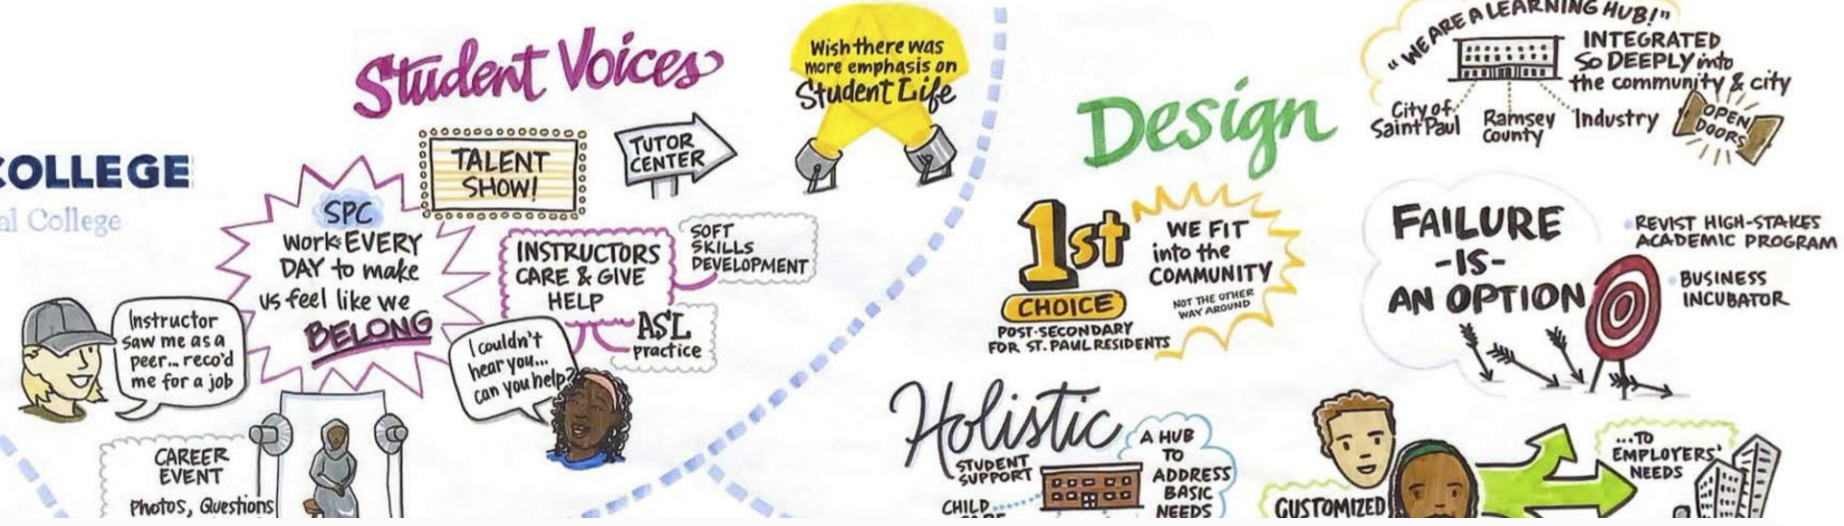 COLLEGE
al College
Student Voices
TALENT
SHOW!
TUTOR
CENTER
Wish there was
more emphasis on
Student Life
SPC
works EVERY
DAY to make
us feel like we
BELONG
INSTRUCTORS
CARE & GIVE
HELP
SOFT
SKILLS
DEVELOPMENT
ASL
practice
Instructor
saw me as a
peer... reco'd
me for a job
I couldn't
hear you...
can you help?
CAREER
EVENT
Photos, Questions
Design
"WE ARE A LEARNING HUB!"
INTEGRATED
SO DEEPLY into
the community & city
City of
Saint Paul
Ramsey
County
Industry
OPEN
DOORS
1st
CHOICE
POST-SECONDARY
FOR ST. PAUL RESIDENTS
WE FIT
into the
COMMUNITY
NOT THE OTHER
WAY AROUND
FAILURE
-IS-
AN OPTION
REVIST HIGH-STAKES
ACADEMIC PROGRAM
BUSINESS
INCUBATOR
Holistic
STUDENT
SUPPORT
CHILD
A HUB
TO
ADDRESS
BASIC
NEEDS
CUSTOMIZED
...TO
EMPLOYERS'
NEEDS